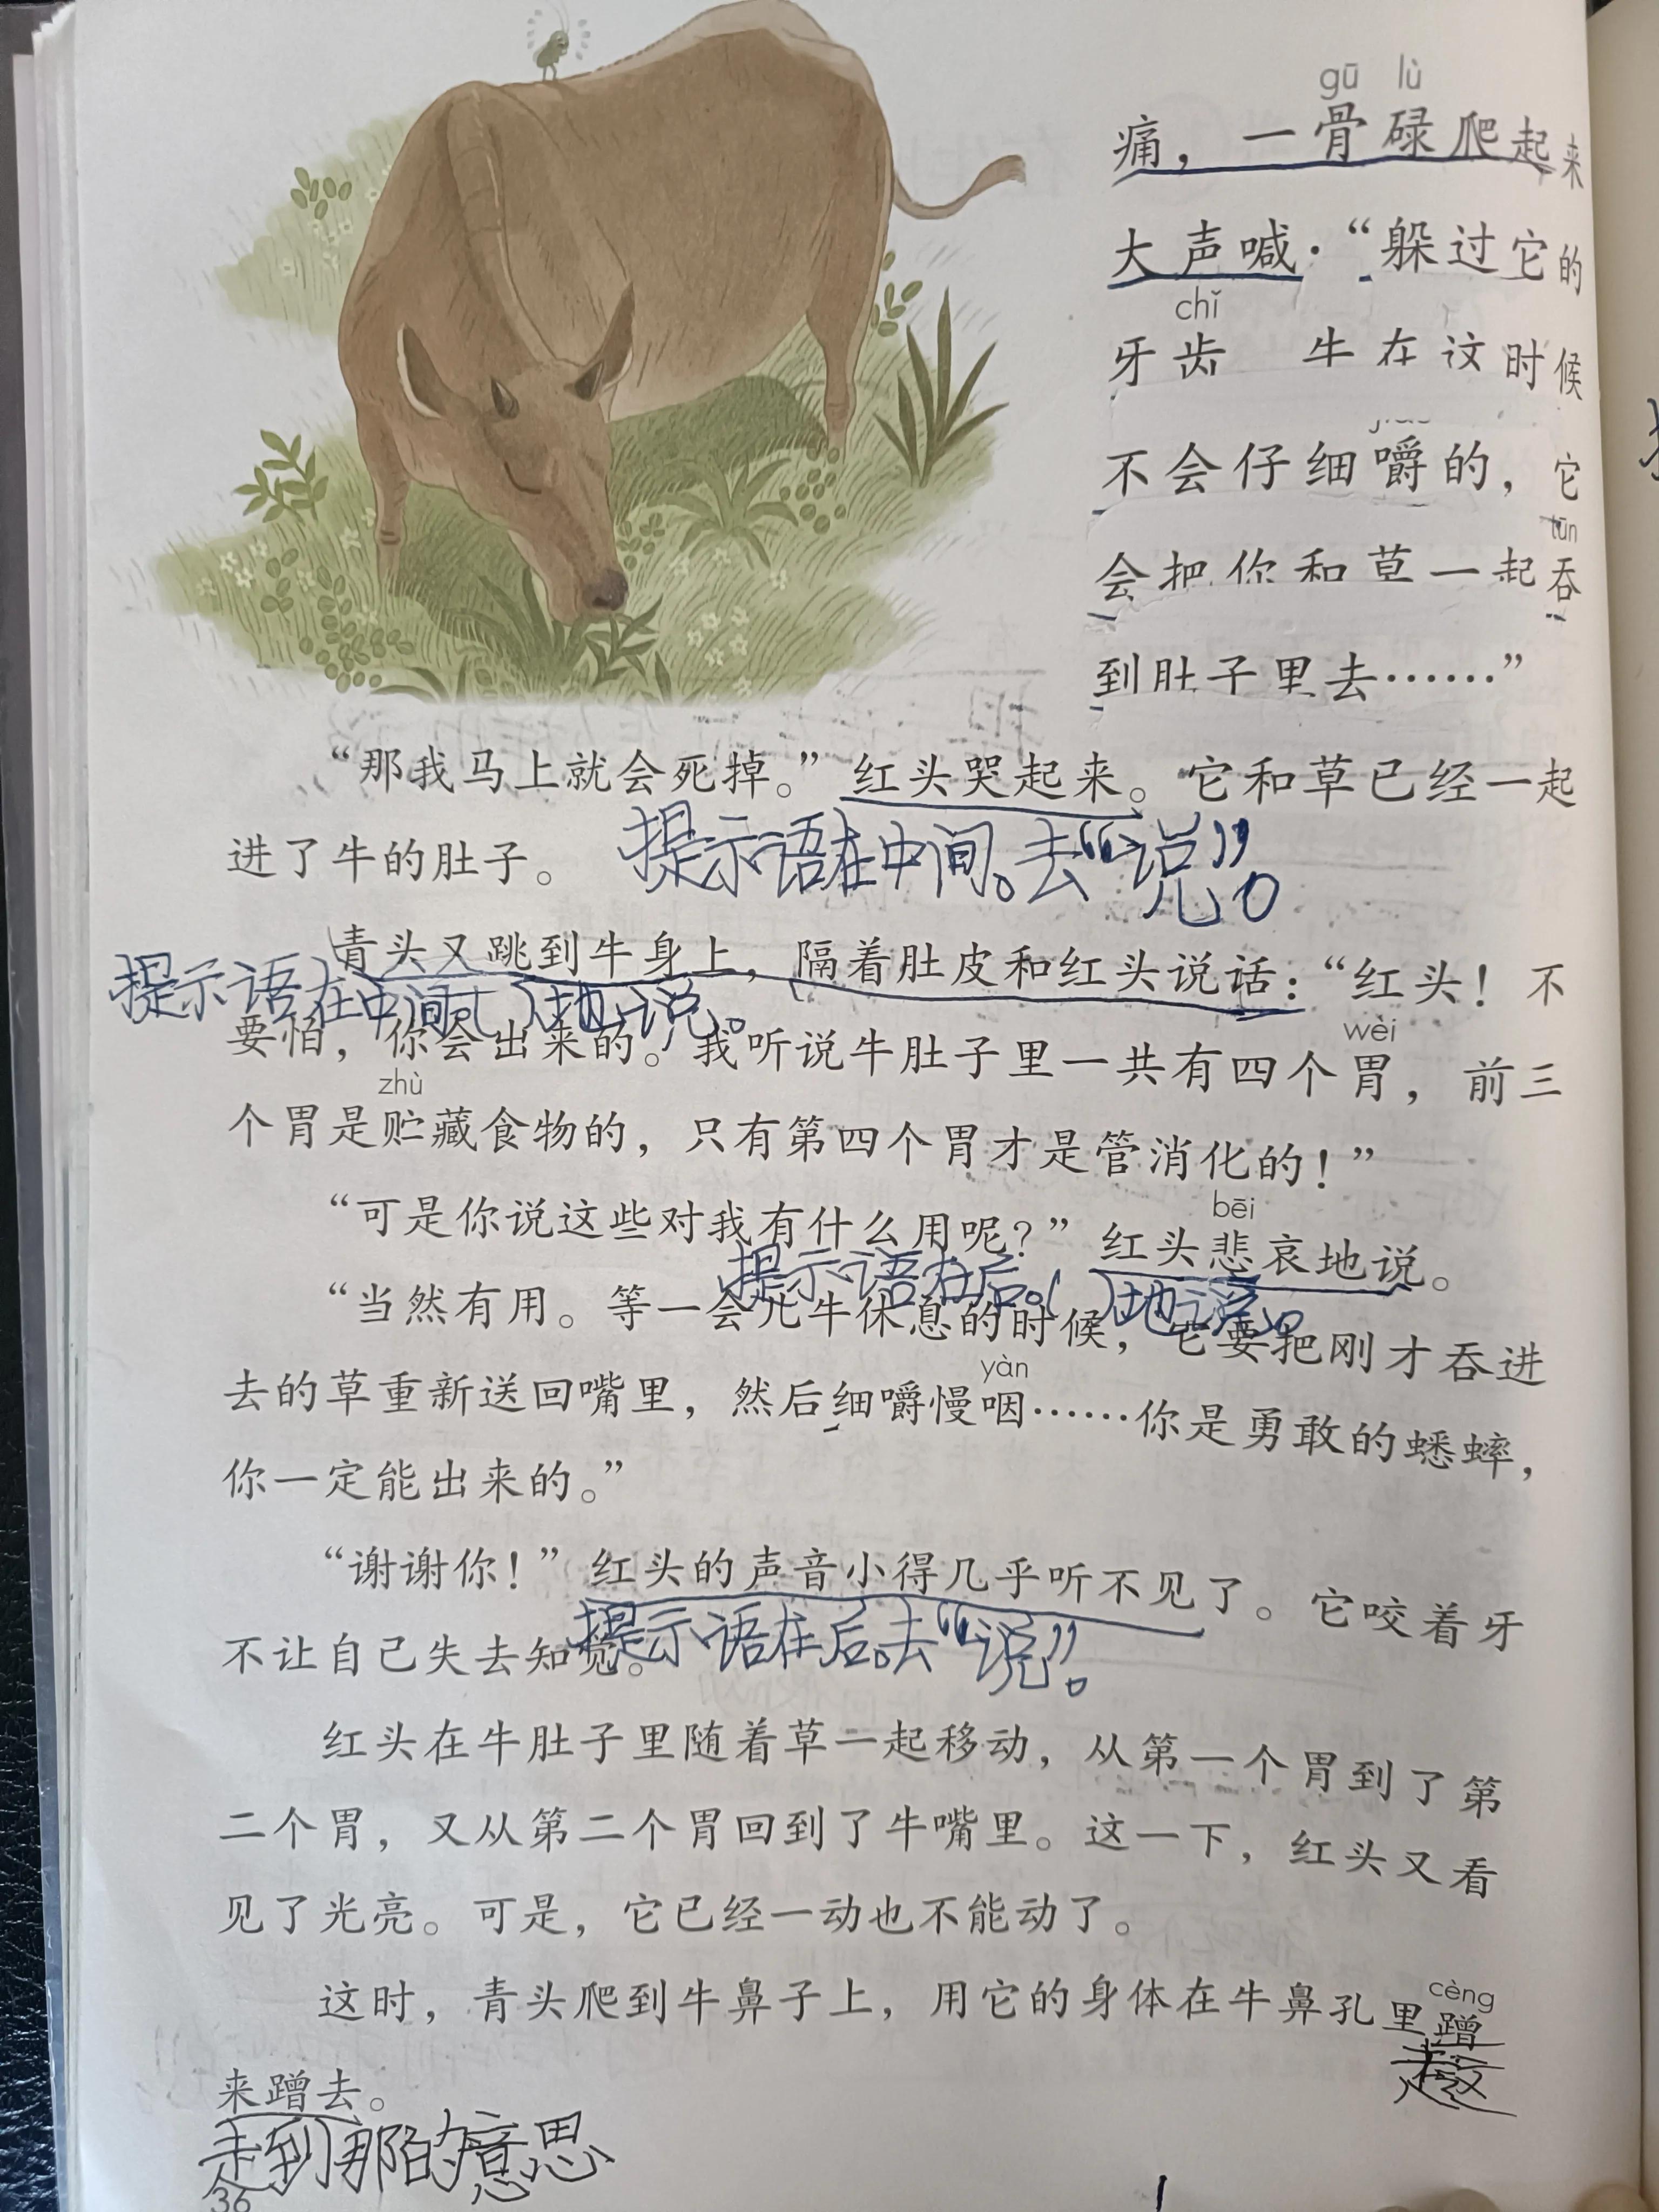 gū lù
痛，一骨碌爬起来
大声喊：“躲过它的
chǐ
牙齿 牛在这时候
不会仔细嚼的，它
tūn
会把你和草一起吞
到肚子里去……”
“那我马上就会死掉。”红头哭起来。它和草已经一起
进了牛的肚子。
提示语在中间。去“说”。
青头又跳到牛身上，隔着肚皮和红头说话：“红头！不
提示语在中间( )地说。
wèi
要怕，你会出来的。我听说牛肚子里一共有四个胃，前三
zhù
个胃是贮藏食物的，只有第四个胃才是管消化的！”
bēi
“可是你说这些对我有什么用呢？”红头悲哀地说。
提示语在后。( )地说。
“当然有用。等一会儿牛休息的时候，它要把刚才吞进
yàn
去的草重新送回嘴里，然后细嚼慢咽……你是勇敢的蟋蟀，
你一定能出来的。”
“谢谢你！”红头的声音小得几乎听不见了。它咬着牙
提示语在后。去“说”。
不让自己失去知觉。
红头在牛肚子里随着草一起移动，从第一个胃到了第
二个胃，又从第二个胃回到了牛嘴里。这一下，红头又看
见了光亮。可是，它已经一动也不能动了。
cèng
这时，青头爬到牛鼻子上，用它的身体在牛鼻孔里蹭
来蹭去。
走到那的意思
36